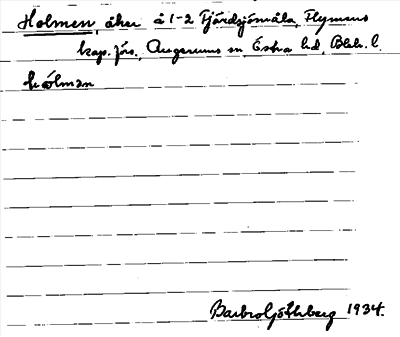 Holmen, åker å 1-2 Fjärdsjömåla, Flymens
kap. förs., Augerums sn Östra hd, Blek. l.
hólman
Barbro Götherberg 1934.